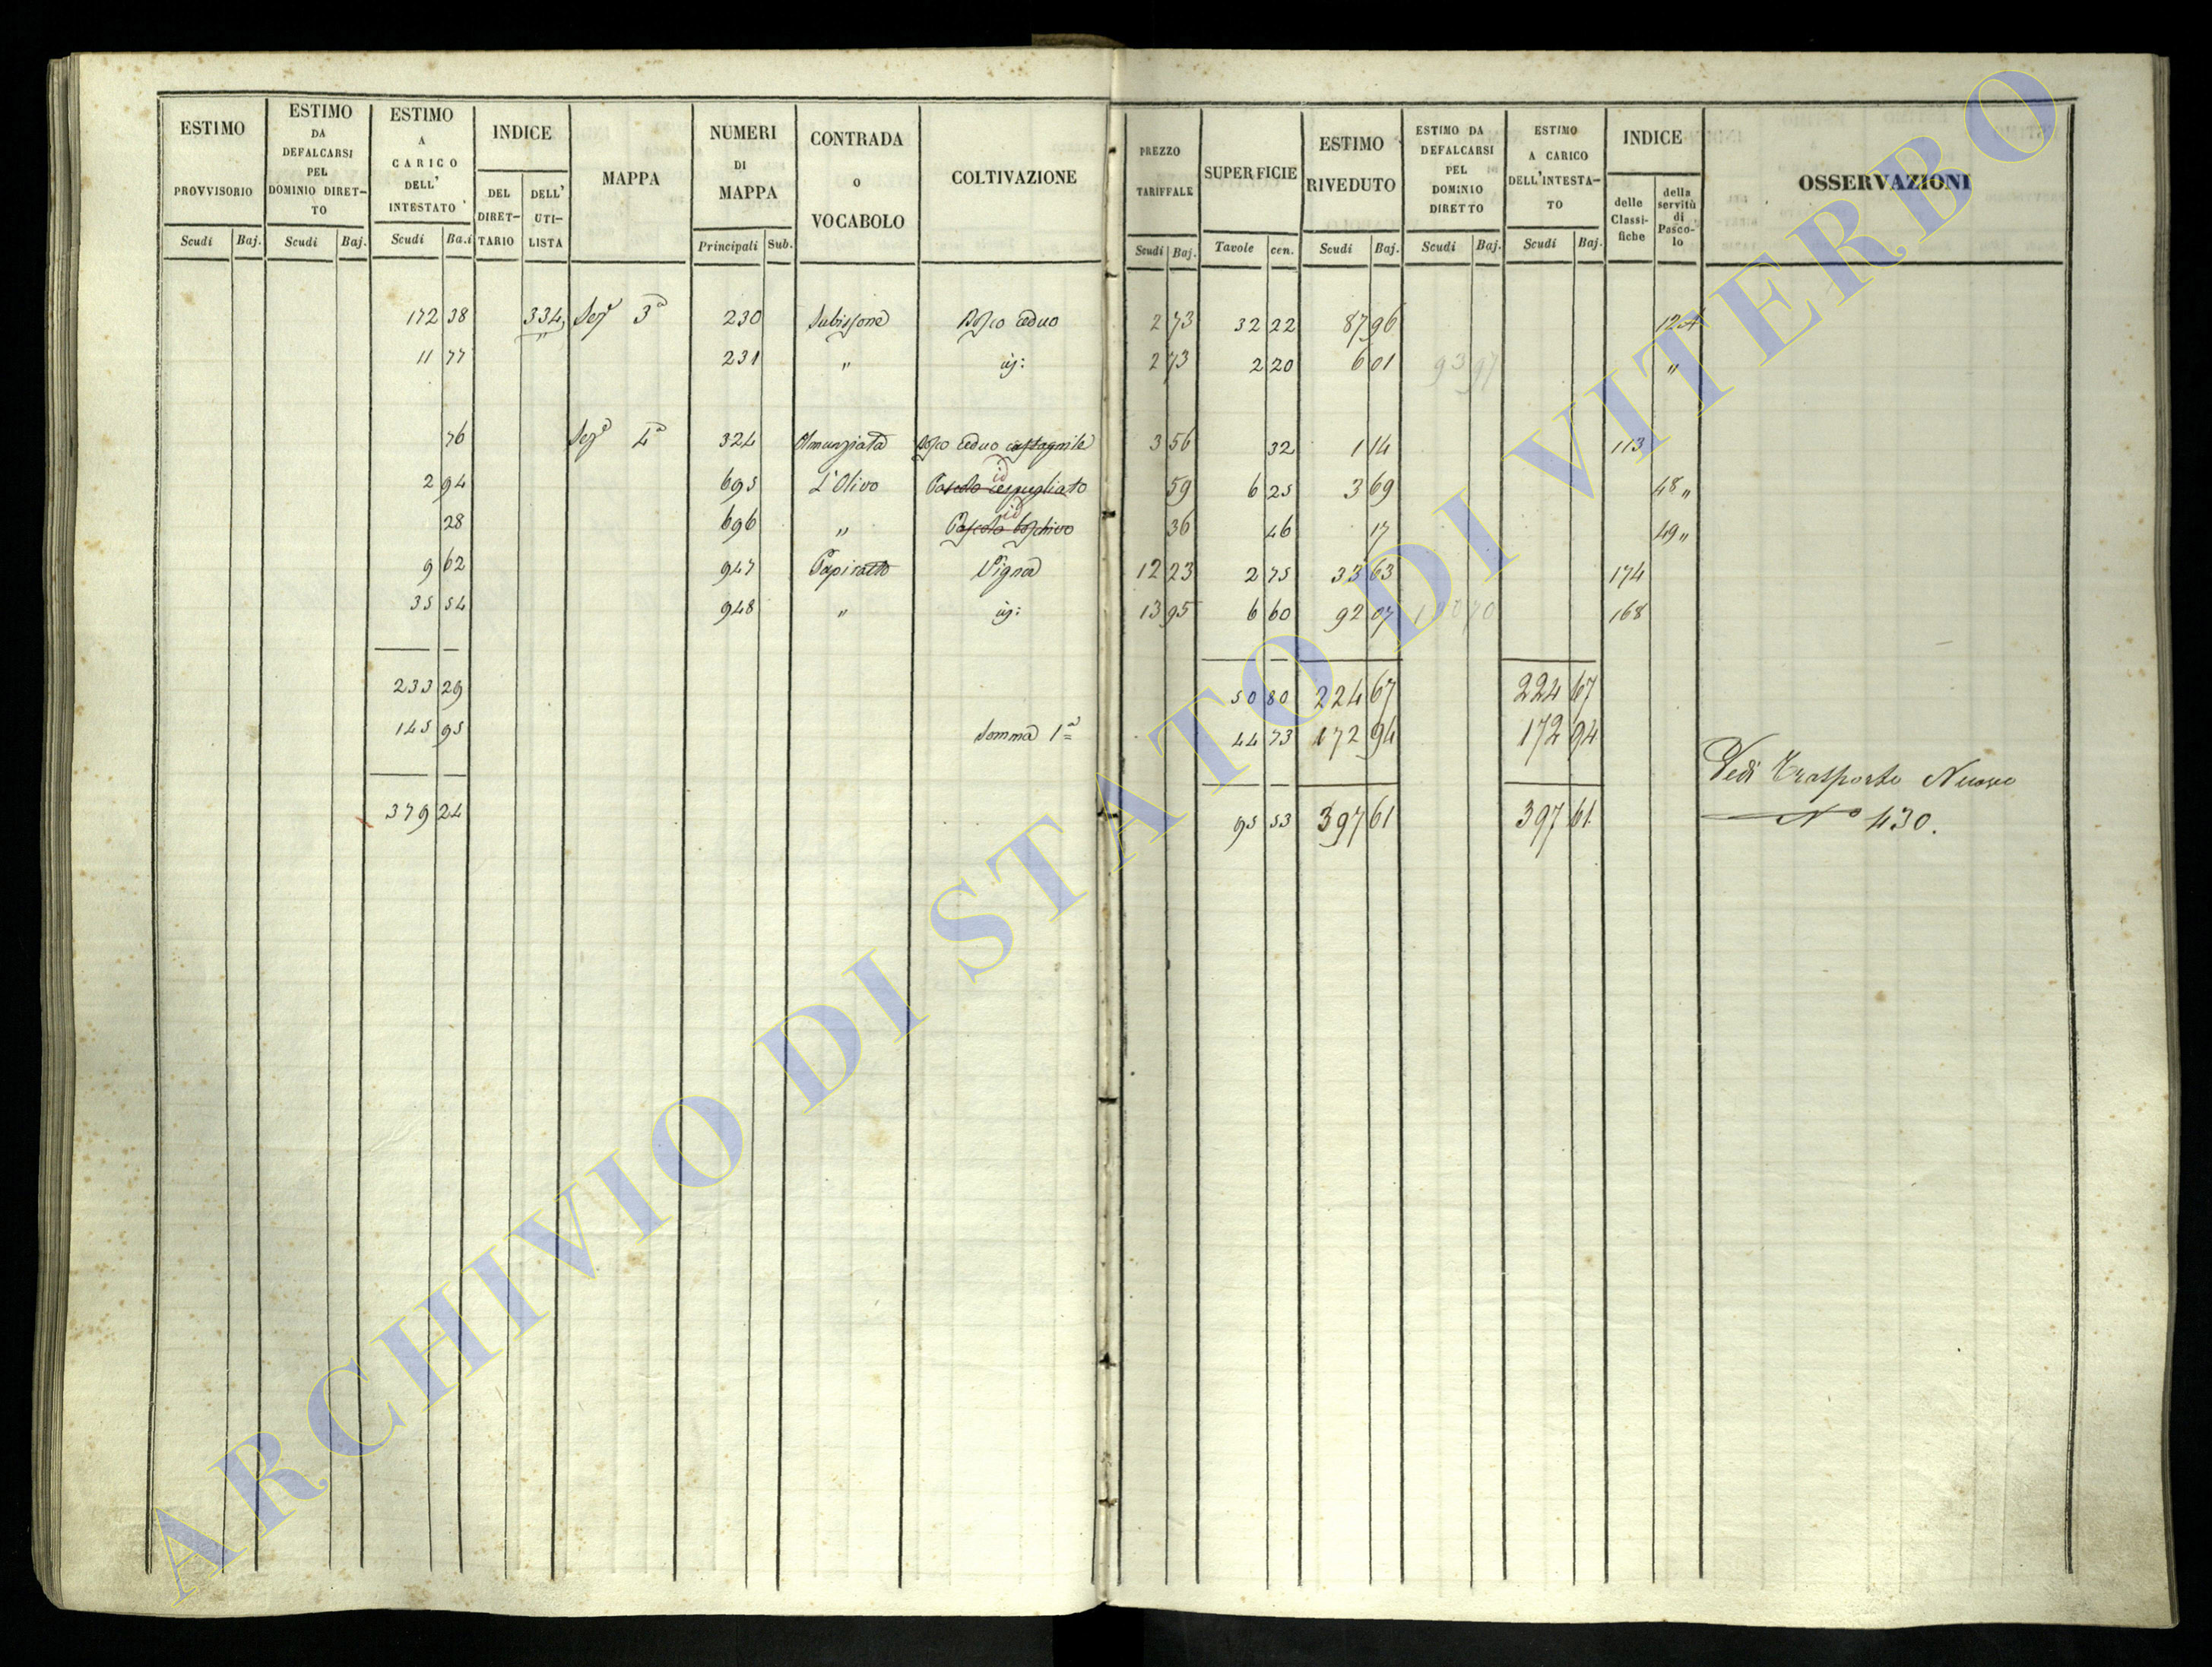 ESTIMO PROVVISORIO | ESTIMO DA DEFALCARSI PEL DOMINIO DIRETTO | ESTIMO A CARICO DELL' INTESTATO | INDICE | MAPPA | NUMERI DI MAPPA | CONTRADA O VOCABOLO | COLTIVAZIONE | PREZZO TARIFFALE | SUPERFICIE | ESTIMO RIVEDUTO | ESTIMO DA DEFALCARSI PEL DOMINIO DIRETTO | ESTIMO A CARICO DELL'INTESTATO | INDICE | OSSERVAZIONI
DEL DIRETTARIO | DELL' UTILISTA | delle Classifiche | della servitù di Pascolo
Scudi | Baj. | Scudi | Baj. | Scudi | Baj. | Principali | Sub. | Scudi | Baj. | Tavole | cen. | Scudi | Baj. | Scudi | Baj. | Scudi | Baj.
172 38 | 334 | Sezᵉ 3ª | 230 | Subissone | Bosco ceduo | 2 73 | 32 22 | 87 96 | 12 A
11 77 | 231 | " | id: | 2 73 | 2 20 | 6 01 | 93 97 | "
76 | Sezᵉ 4ª | 324 | Annunziata | Bosco ceduo castagnile | 3 56 | 32 | 1 14 | 113
id
2 94 | 695 | L'Olivo | Pascolo cespugliato | 59 | 6 25 | 3 69 | 48 "
id
28 | 696 | " | Pascolo boschivo | 36 | 46 | 17 | 49 "
9 62 | 947 | Vigna | 12 23 | 2 75 | 33 63 | 174
35 54 | 948 | " | id: | 13 95 | 6 60 | 92 07 | 70 | 168
233 29 | 50 80 | 224 67 | 224 67
145 95 | Somma 1ª | 44 73 | 172 94 | 172 94
Vedi Trasporto Nuovo
379 24 | 95 53 | 397 61 | 397 61 | Nº 430.
ARCHIVIO DI STATO DI VITERBO